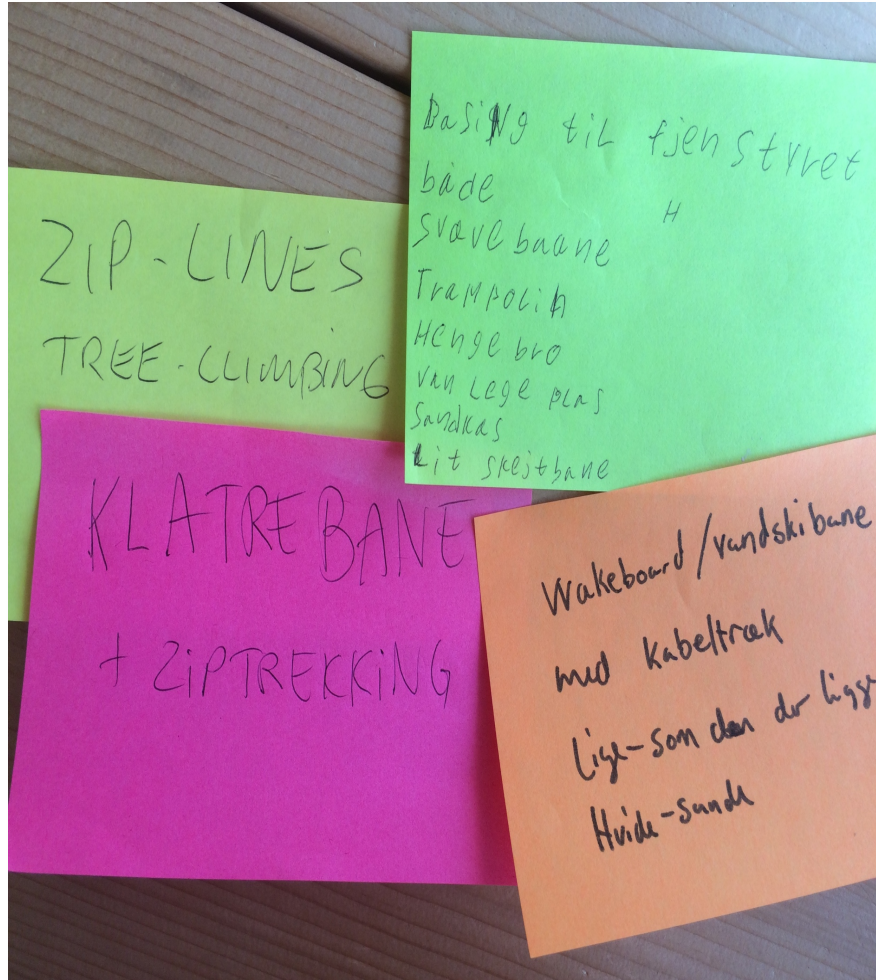 ZIP-LINES
TREE-CLIMBING
BasiNg til fjenstyret
både
H
svævebaane
Trampolin
Hengebro
van Lege plas
Sandkas
Lit skejtbane
KLATREBANE
+ ZIPTREKKING
Wakeboard/vandskibane
med kabeltræk
Lige-som den der ligge
Hvide-sande